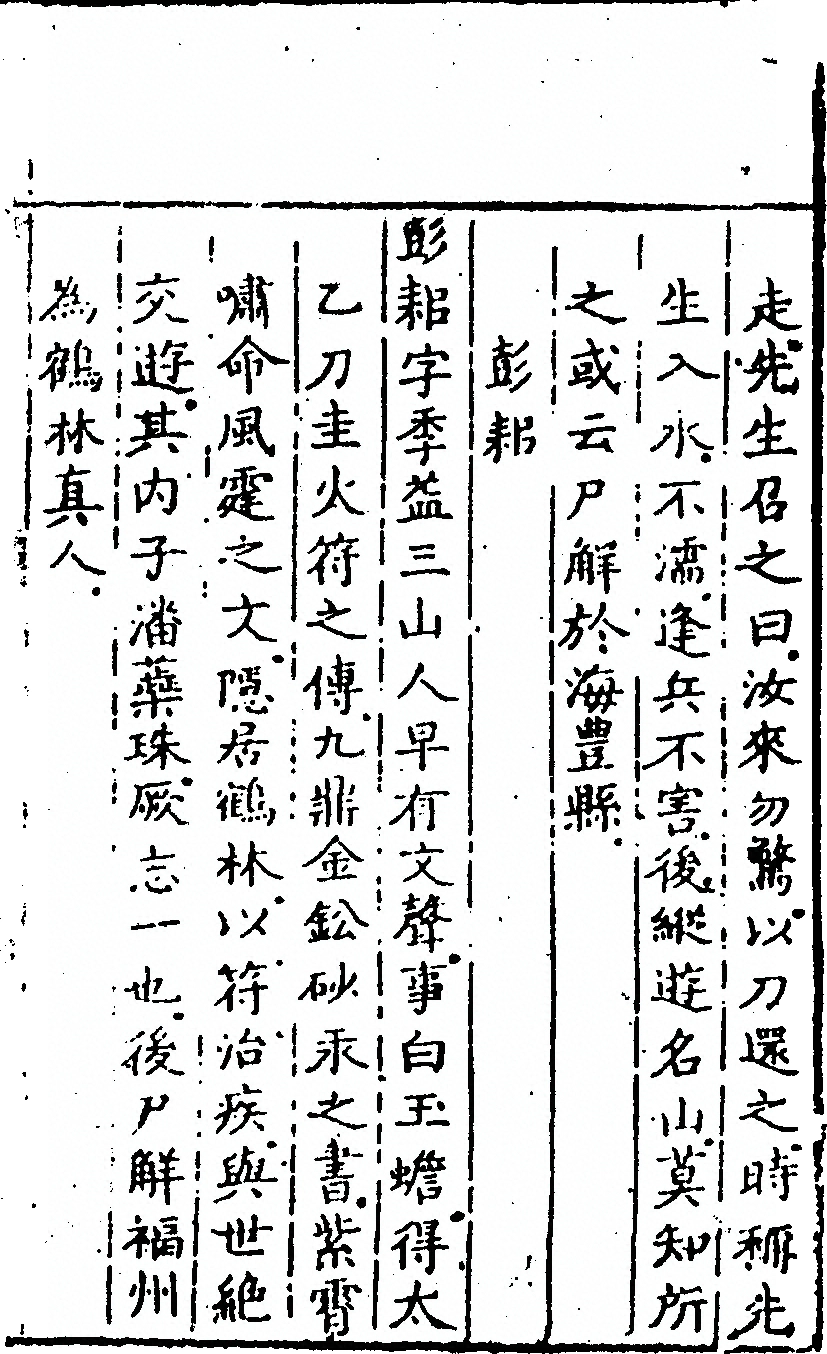 走先生召之曰汝來勿驚以刀還之時稱先
生入水不濡逢兵不害後縱遊名山莫知所
之或云尸解於海豐縣
彭耜
彭耜字季益三山人早有文聲事白玉蟾得太
乙刀圭火符之傳九鼎金鈆砂汞之書紫霄
嘯命風霆之文隱居鶴林以符治疾與世絶
交遊其内子潘蘂珠厥志一也後尸解福州
為鶴林真人